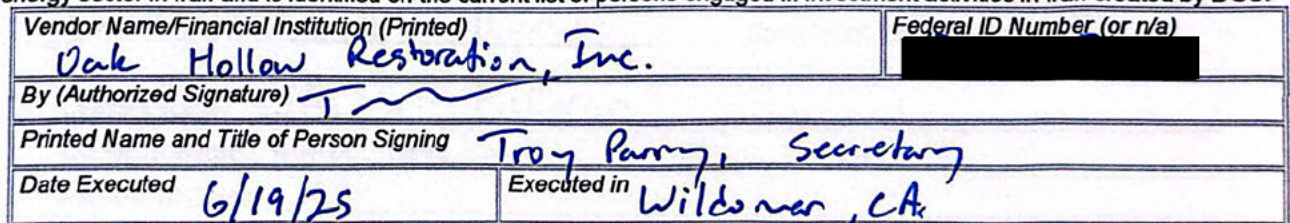 energy sector in Iran and is identified on the current list of persons engaged in investment activities in Iran created by DGS.
Vendor Name/Financial Institution (Printed)
Federal ID Number (or n/a)
Oak Hollow Restoration, Inc.
By (Authorized Signature)
Printed Name and Title of Person Signing Troy Parry, Secretary
Date Executed 6/19/25 Executed in Wildomar, CA.